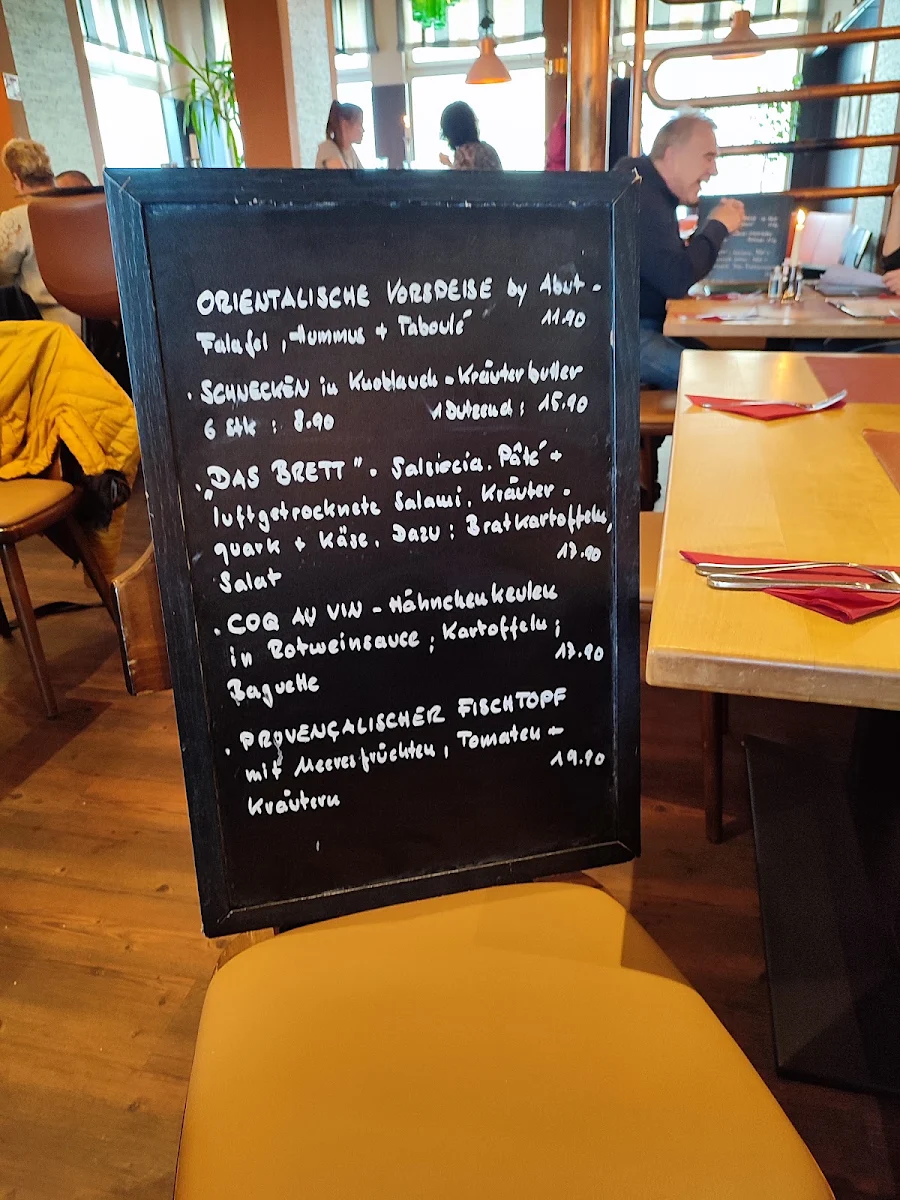 ORIENTALISCHE VORSPEISE by Abut -
Falafel, Hummus + Taboulé 11.90
. SCHNECKEN in Knoblauch - Kräuterbutter
6 Stk : 8.90 1 Dutzend : 15.90
. „DAS BRETT". Salsiccia. Pâté +
luftgetrocknete Salami. Kräuter -
quark + Käse. Dazu : Bratkartoffeln,
Salat 17.90
. COQ AU VIN - Hähnchenkeulen
in Rotweinsauce ; Kartoffeln ;
Baguette 17.90
. PROVENÇALISCHER FISCHTOPF
mit Meeresfrüchten, Tomaten +
Kräutern 19.90